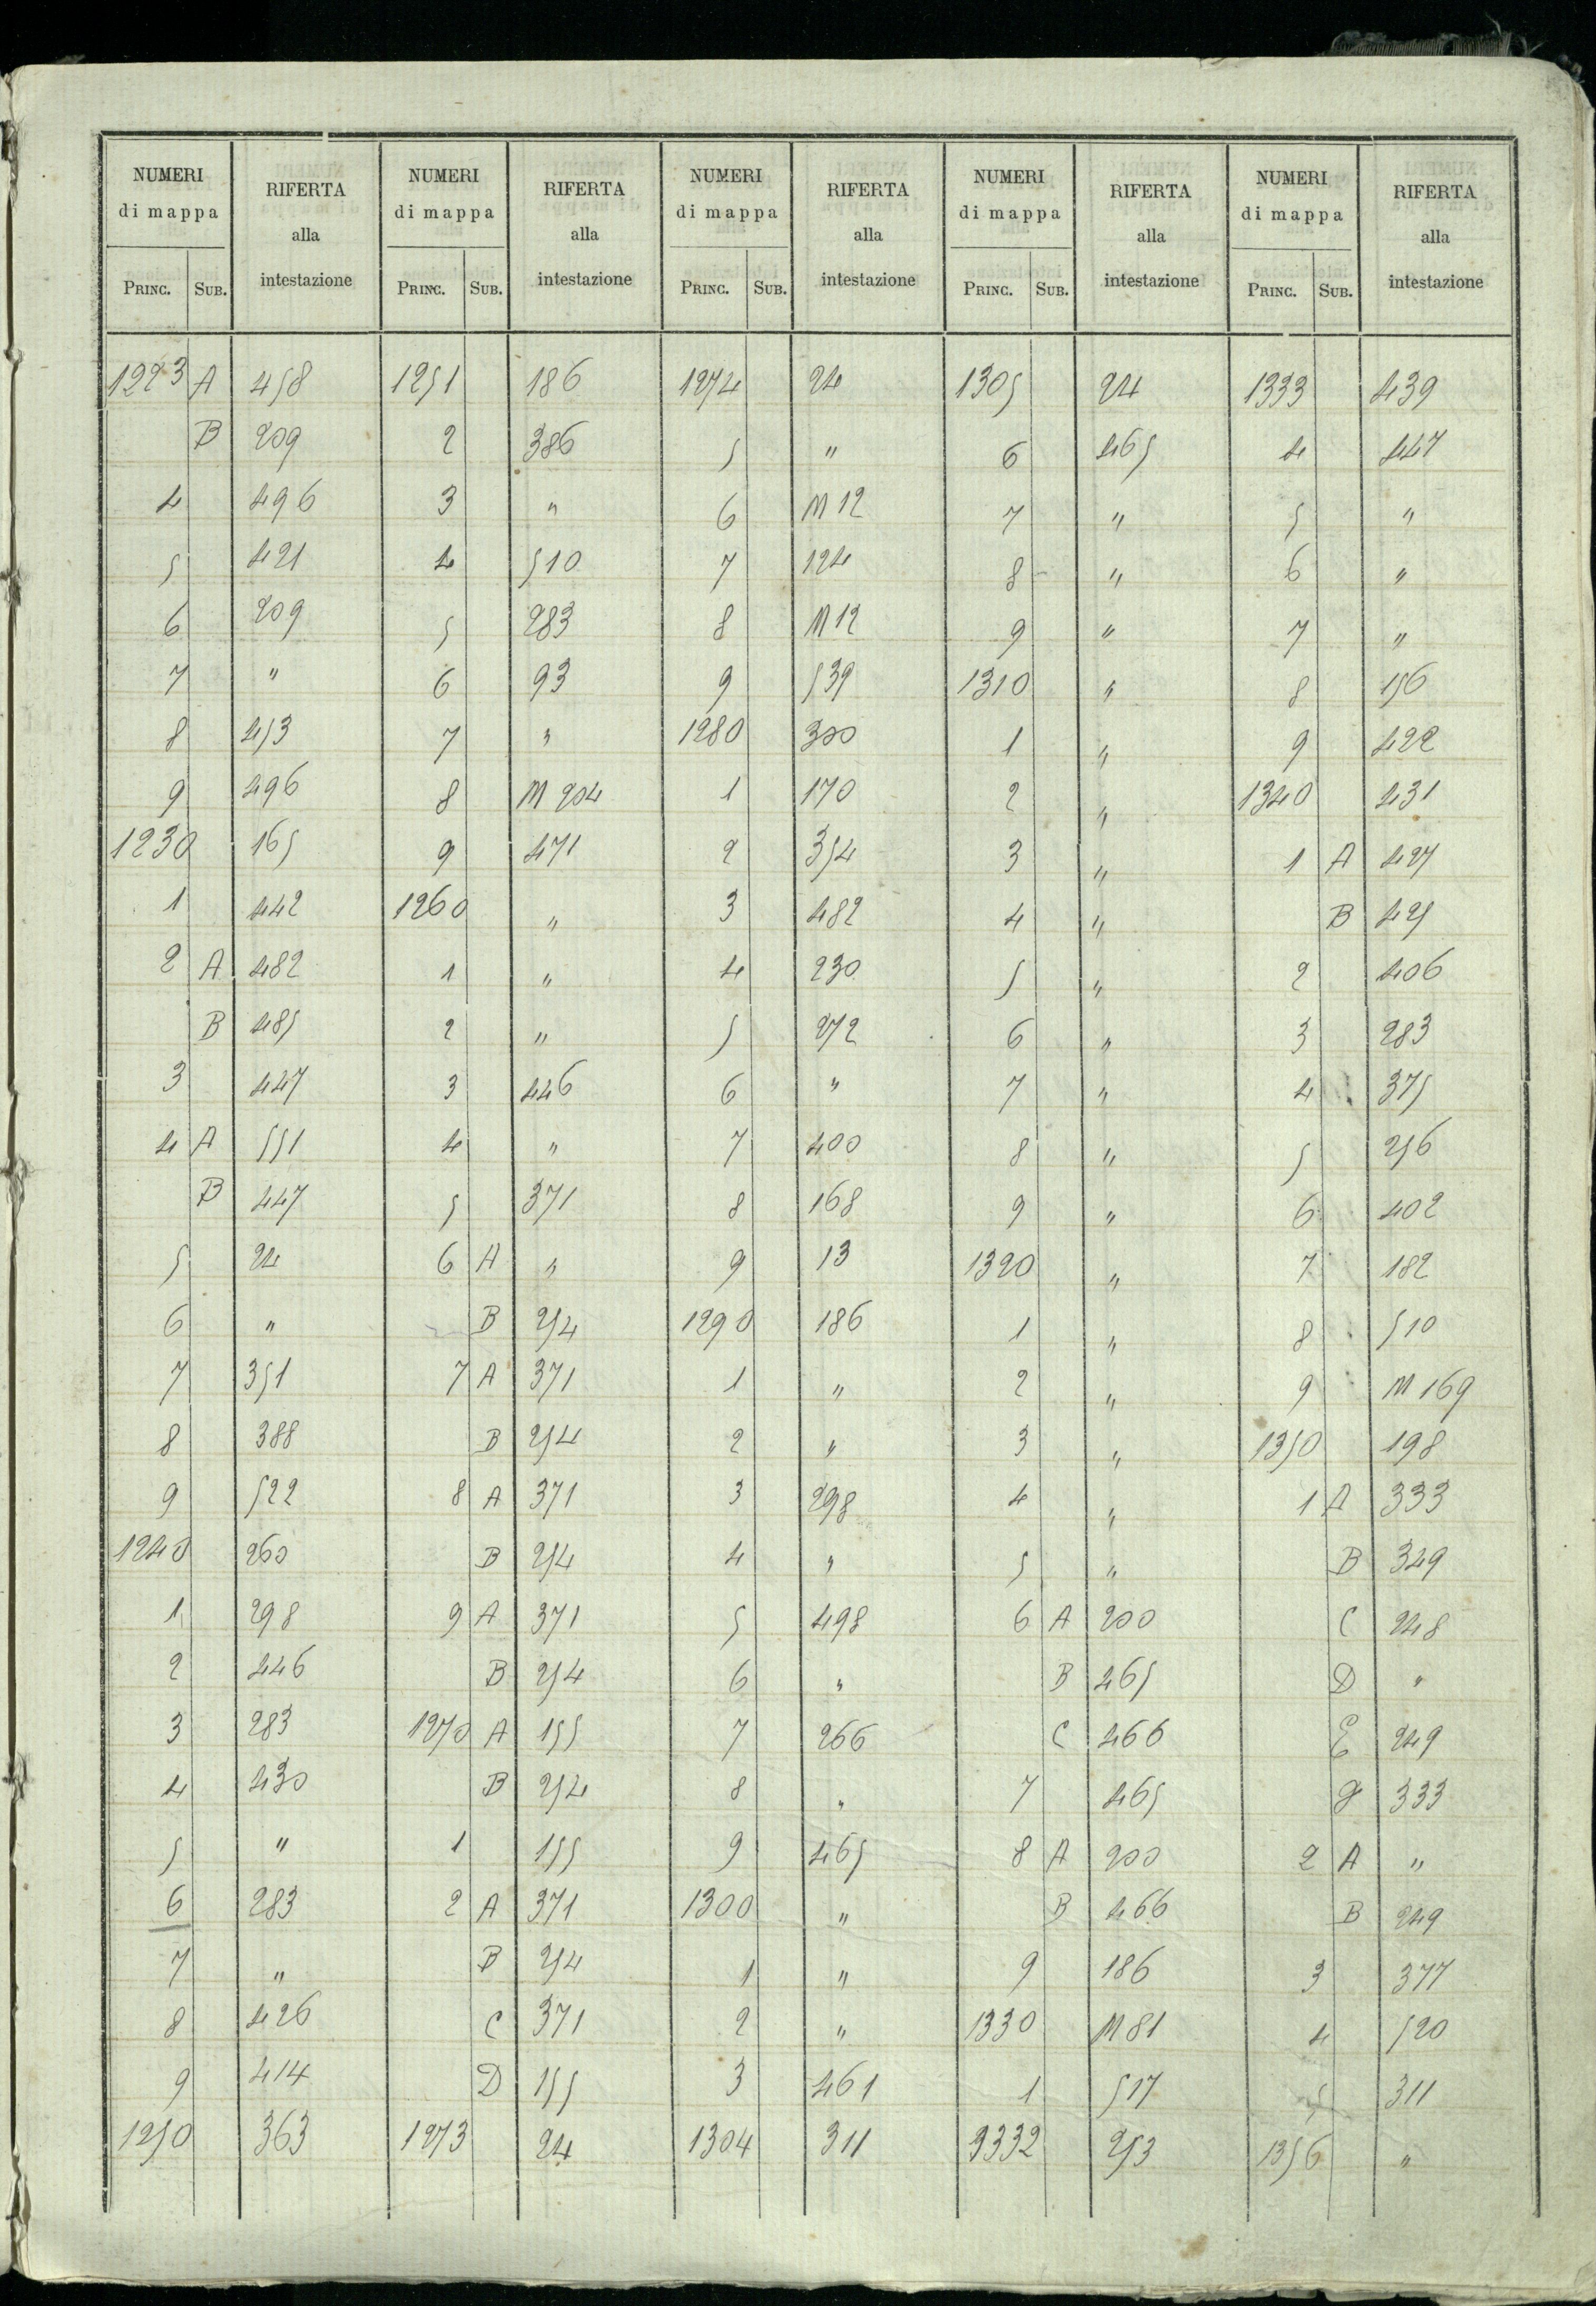 NUMERI di mappa RIFERTA alla intestazione NUMERI di mappa RIFERTA alla intestazione NUMERI di mappa RIFERTA alla intestazione NUMERI di mappa RIFERTA alla intestazione NUMERI di mappa RIFERTA alla intestazione
PRINC. SUB. PRINC. SUB. PRINC. SUB. PRINC. SUB. PRINC. SUB.
1223 A 458 1251 186 1274 24 1305 24 1333 439
B 209 2 386 5 " 6 465 4 447
4 496 3 " 6 M 12 7 " 5 "
5 421 4 510 7 124 8 " 6 "
6 209 5 283 8 M 12 9 " 7 "
7 " 6 93 9 539 1310 " 8 156
8 453 7 " 1280 300 1 " 9 422
9 496 8 M 204 1 170 2 " 1340 431
1230 165 9 471 2 354 3 " 1 A 427
1 442 1260 " 3 482 4 " B 425
2 A 482 1 " 4 230 5 " 2 406
B 485 2 " 5 272 6 " 3 283
3 447 3 446 6 " 7 " 4 375
4 A 551 4 " 7 400 8 " 5 256
B 447 5 371 8 168 9 " 6 402
5 24 6 A " 9 13 1320 " 7 182
6 " B 254 1290 186 1 " 8 510
7 351 7 A 371 1 " 2 " 9 M 169
8 388 B 254 2 " 3 " 1350 198
9 522 8 A 371 3 298 4 " 1 A 333
1240 260 B 254 4 " 5 " B 349
1 298 9 A 371 5 498 6 A 200 C 248
2 446 B 254 6 " B 465 D "
3 283 1270 A 155 7 266 C 466 E 249
4 430 B 254 8 " 7 465 g 333
5 " 1 155 9 465 8 A 200 2 A "
6 283 2 A 371 1300 " B 466 B 249
7 " B 254 1 " 9 186 3 377
8 426 C 371 2 " 1330 M 81 4 520
9 414 D 155 3 461 1 517 5 311
1250 363 1273 24 1304 311 3332 253 1356 "